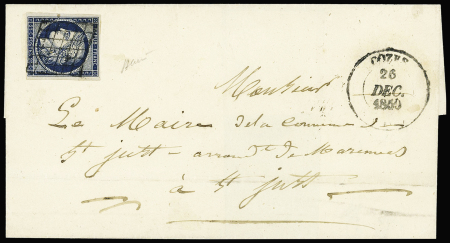 COZES
26
DEC.
1850
Monsieur
Le Maire de la Commune de
St just - arrondt de Marennes
à St just